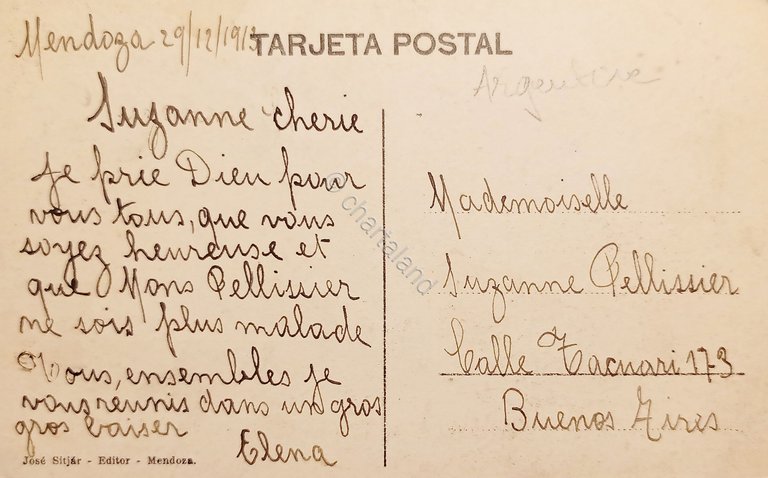 Mendoza 29/12/1913
TARJETA POSTAL
Argentine
Suzanne cherie
Je prie Dieu pour
vous tous, que vous
soyez heureuse et
que Mons Pellissier
ne sois plus malade
Vous, ensembles je
vous reunis dans un gros
gros baiser
Elena
Mademoiselle
Suzanne Pellissier
Calle Tacuari 173
Buenos Aires
José Sitjár - Editor - Mendoza.
© chartaland